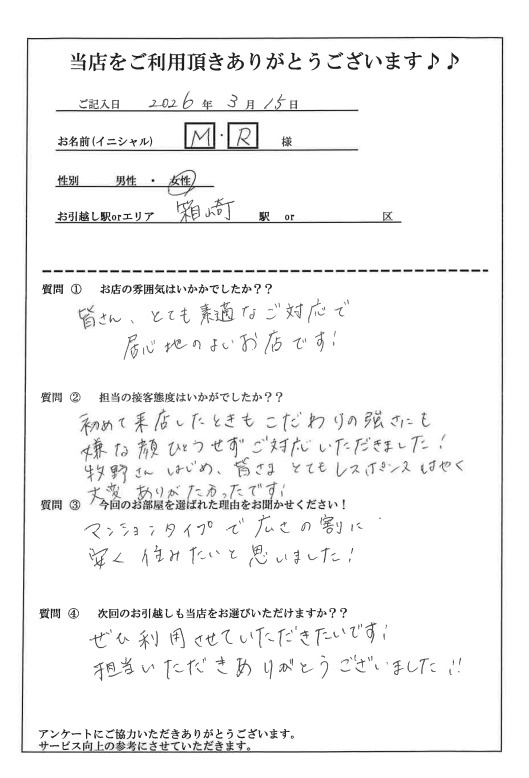 当店をご利用頂きありがとうございます♪♪
ご記入日 2026年 3月 15日
お名前(イニシャル) M・R 様
性別 男性 ・ 女性
お引越し駅orエリア 箱崎 駅 or 区
質問 ① お店の雰囲気はいかかでしたか??
皆さん、とても素適なご対応で
居心地のよいお店です!
質問 ② 担当の接客態度はいかがでしたか??
初めて来店したときもこだわりの強さにも
嫌な顔ひとつせずご対応いただきました!
牧野さんはじめ、皆さまとてもレスポンスはやく
大変ありがたかったです!
質問 ③ 今回のお部屋を選ばれた理由をお聞かせください!
マンションタイプで広さの割に
安く住みたいと思いました!
質問 ④ 次回のお引越しも当店をお選びいただけますか??
ぜひ利用させていただきたいです!
担当いただきありがとうございました!!
アンケートにご協力いただきありがとうございます。
サービス向上の参考にさせていただきます。